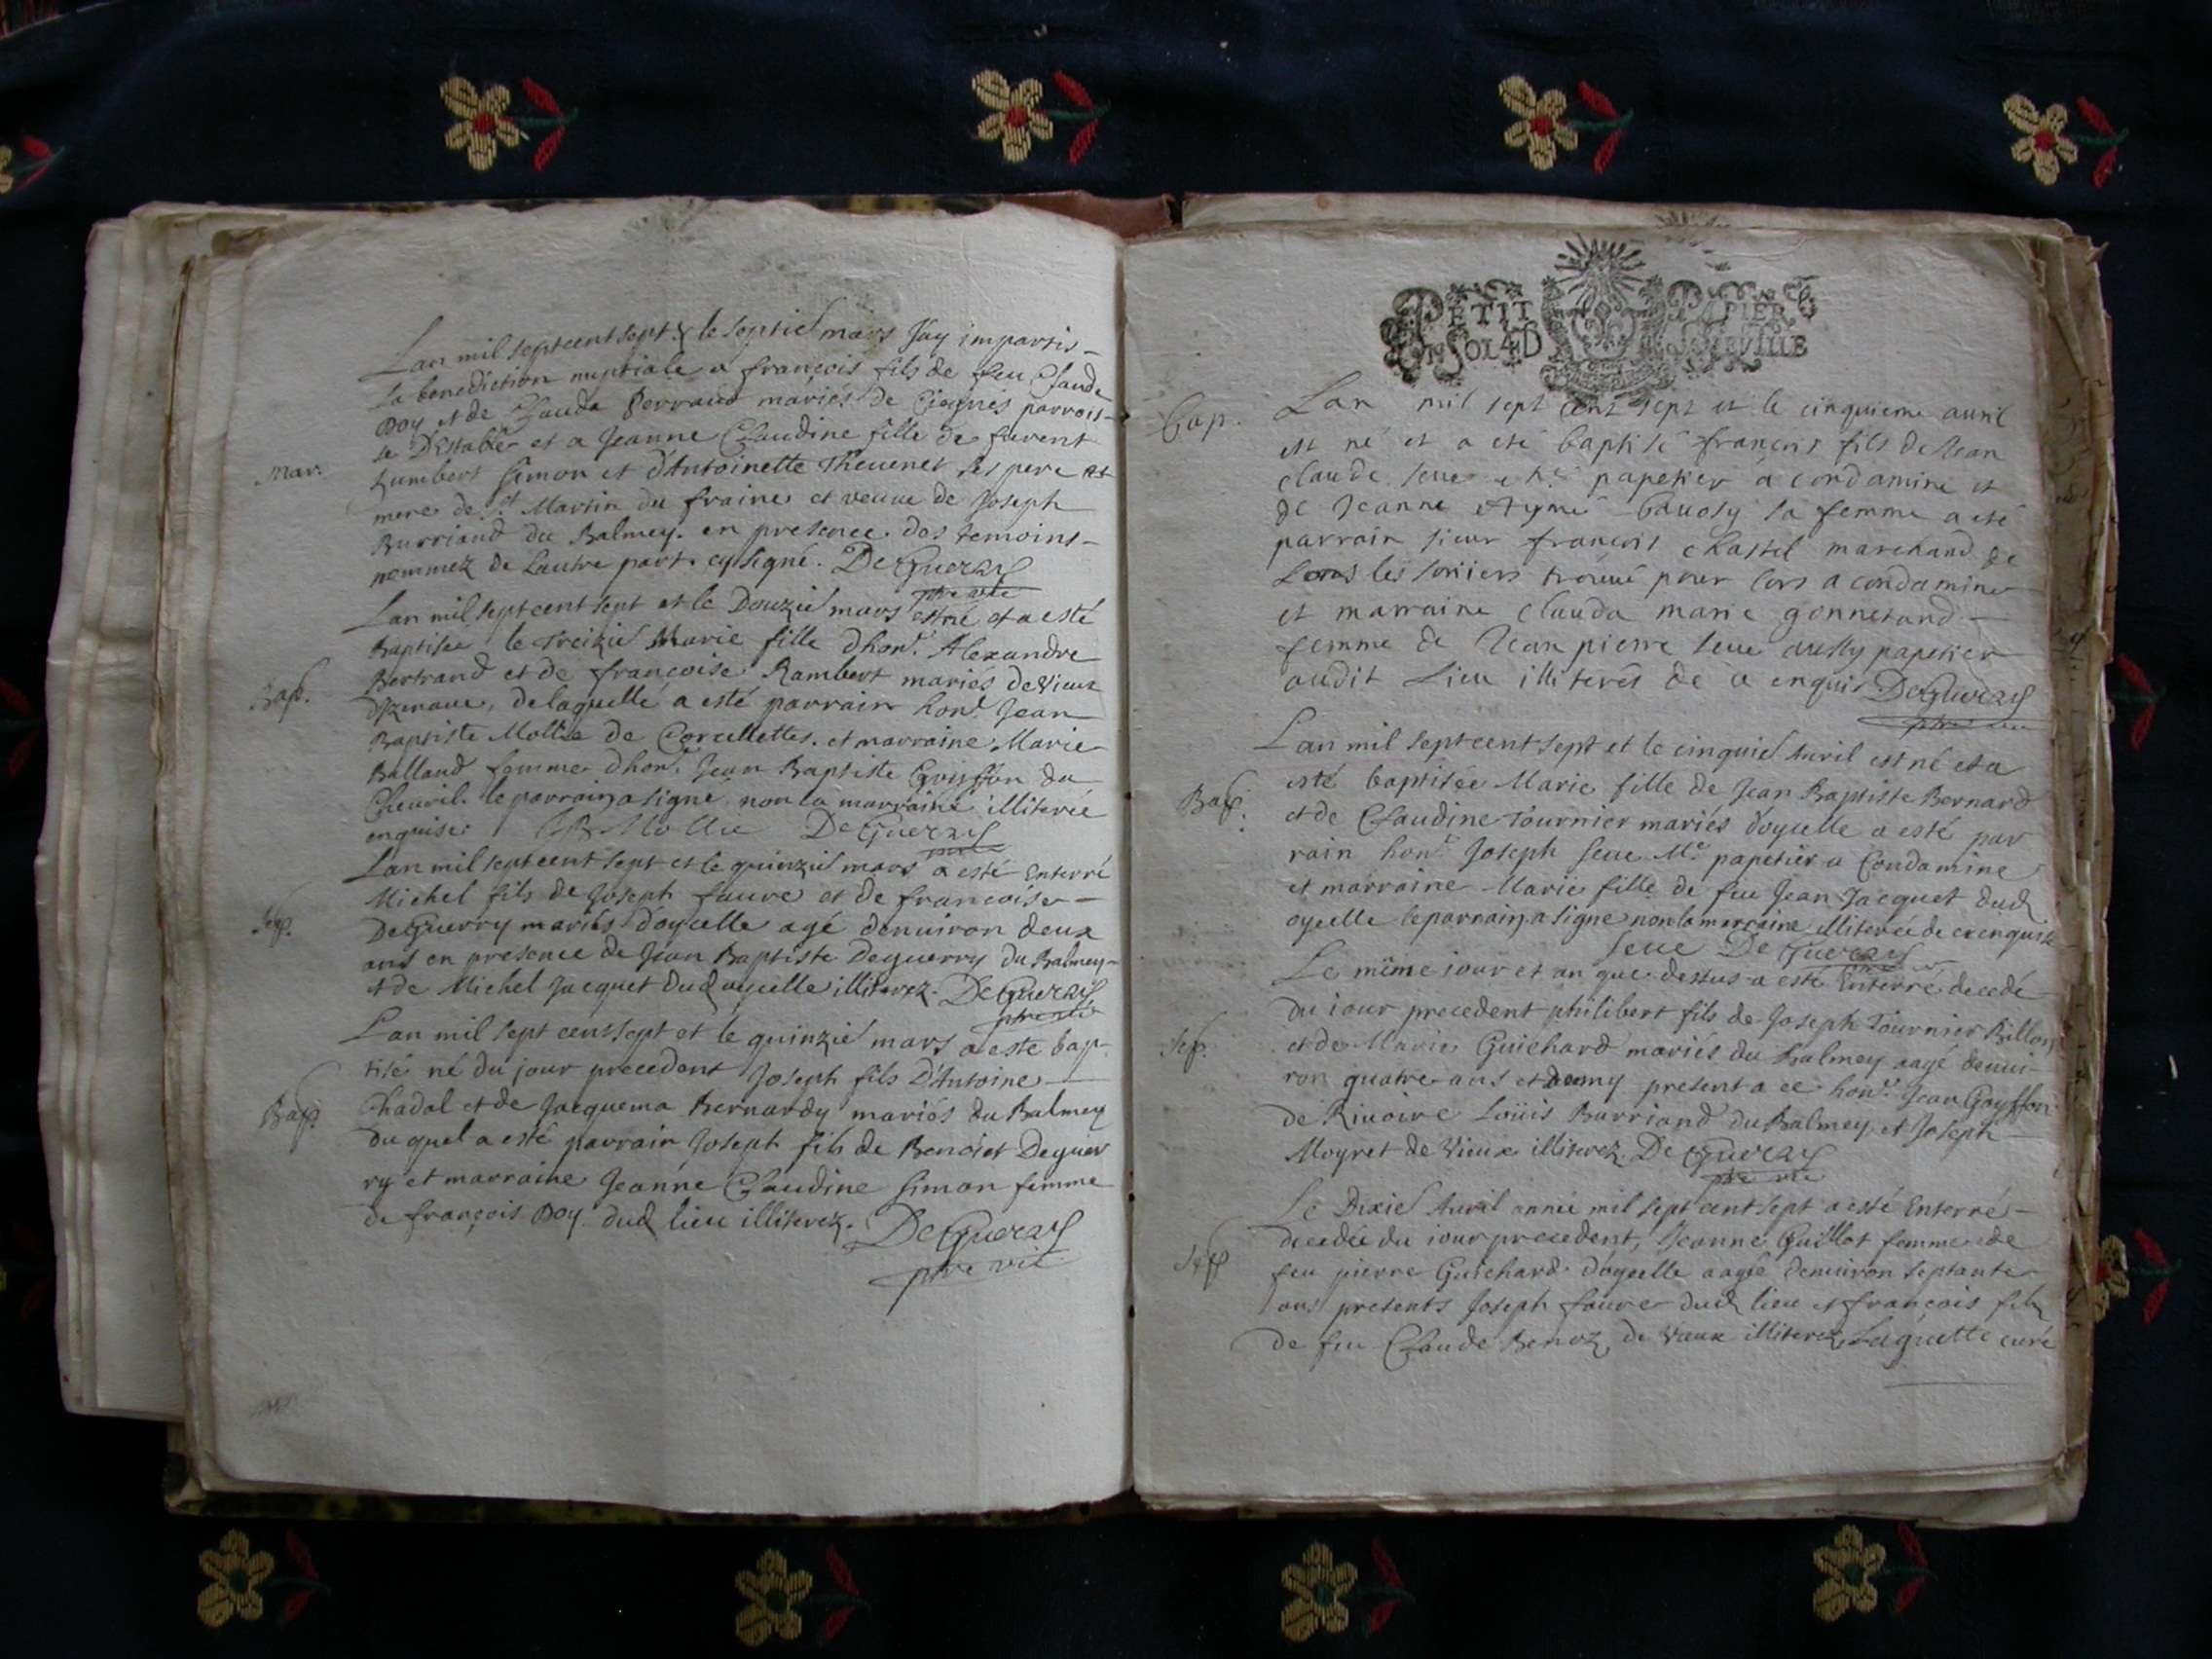 Lan mil septcent sept & le septie mars Jay imparti
la benediction nuptiale a françois fils de feu Claude
Doy et de Clauda Perraud mariés de Ciegnes parrois-
se et a Jeanne Claudine fille de furent
humbert Simon et d'Antoinette Theuenet ses pere et
mar.
mere de St Martin du fraine et veuue de Joseph
Burriand du Balmey. en presence des temoins
nommez de Lautre part. cy signé. DeGuerry
ptre vic
Lan mil sept cent sept et le Douzie mars est né et a esté
Baptisée le treizie Marie fille dhon. Alexandre
Bap.
Bertrand et de françoise Rambert mariés de Vieux
dizenaue, de laquelle a esté parrain hon. Jean
Baptiste Mollie de Corcellettes. et marraine Marie
Balland femme dhon. Jean Baptiste Goiffon du
Cheuril. le parrain a signé non la marraine illiterée
enquise. JB Mollie DeGuerry
Lan mil sept cent sept et le quinzie mars a esté Enterré
Michel fils de Joseph faure et de francoise
Sep.
DeGuerry mariés doycelle agé denuiron deux
ans en presence de Jean Baptiste Deguerry du Balmey
et de Michel Jacquet dud oycelle illiterez. DeGuerry
ptre vic
Lan mil sept cent sept et le quinzie mars a este bap-
tisé né du jour precedent Joseph fils D'Antoine
Bap.
Chadal et de Jacquema Bernardy mariés du Balmey
du quel a esté parrain Joseph fils de Benoist Deguer
ry et marraine Jeanne Claudine Simon femme
de françois Doy dud lieu illiterez. DeGuerry
ptre vic
PETIT PAPIER
UN SOL 4 D
Lan mil sept cent sept et le cinquieme auril
bap.
est né et a eté baptisé françois fils de Jean
claude seue papetier à condamine et
de Jeanne Aymé bauosy sa femme a eté
parrain sieur françois Chastel marchand de
Lons les sonier trouué pour lors a condamine
et marraine clauda marie gonnetand
femme de Jean pierre seue aussy papetier
audit Lieu illiterés de ce enquis DeGuerry
ptre vic
Lan mil septcent sept et le cinquie Auril est né et a
esté baptisée Marie fille de Jean Baptiste Bernard
Bap.
et de Claudine Tournier mariés doycelle a esté par
rain hon. Joseph seue Me papetier a Condamine
et marraine Marie fille de feu Jean Jacquet dud
oycelle le parrain a signe non la marraine illiterée de ce enquise
seue DeGuerry
Le même iour et an que dessus a esté Enterré decedé
du iour precedent philibert fils de Joseph Tournier Billon
Sep.
et de Marie Guichard mariés du balmey aagé denui-
ron quatre ans et demy present a ce hon. Jean Goyffon
de Riuoire Loüis Burriand du Balmey et Joseph
Moyret de Vieux illiterez. DeGuerry
ptre vic
Le Dixie Auril année mil sept cent sept a esté Enterré
decedée du iour precedent, Jeanne Guillot femme de
Sep
feu pierre Guichard doycelle aagée denuiron septante
ans presents Joseph faure dud lieu et françois fils
de feu Claude Benoz de Vieux illiterez Laguette curé